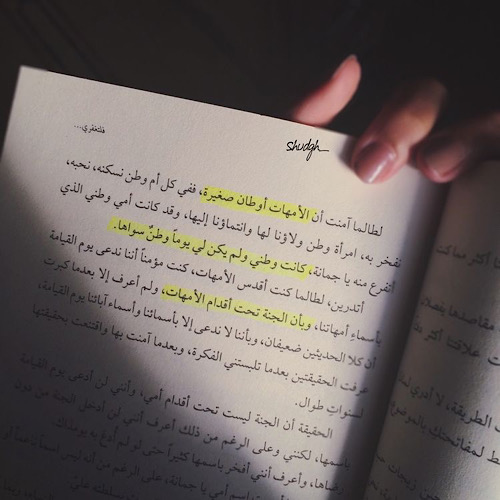 فلتغفري...
shudgh
لطالما آمنت أن الأمهات أوطان صغيرة، ففي كل أم وطن نسكنه، نحبه،
نفخر به، امرأة وطن ولاؤنا لها وانتماؤنا إليها، وقد كانت أمي وطني الذي
أتفرع منه يا جمانة، كانت وطني ولم يكن لي يوماً وطنٌ سواها.
أتدرين، لطالما كنت أقدس الأمهات، كنت مؤمناً أننا ندعى يوم القيامة
بأسماء أمهاتنا، وبأن الجنة تحت أقدام الأمهات، ولم أعرف إلا بعدما كبرت
أن كلا الحديثين ضعيفان، وبأننا لا ندعى إلا بأسمائنا وأسماء آبائنا يوم القيامة،
عرفت الحقيقتين بعدما تلبستني الفكرة، وبعدما آمنت بها واقتنعت بحقيقتها
لسنوات طوال.
الحقيقة أن الجنة ليست تحت أقدام أمي، وأنني لن أدعى يوم القيامة
باسمها، لكنني وعلى الرغم من ذلك أعرف أنني لن أدخل الجنة من دون
رضاها، وأعرف أنني أفخر باسمها كثيراً حتى لو لم أدع به يومذاك